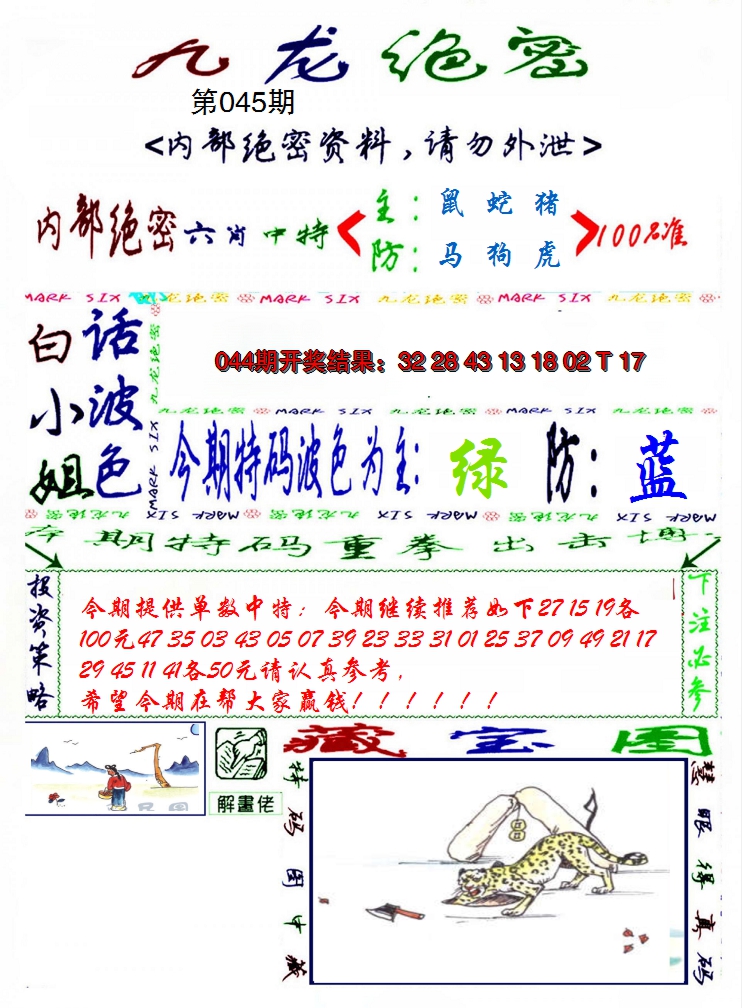 九龙绝密
第045期
<内部绝密资料,请勿外泄>
内部绝密六肖中特
主：鼠 蛇 猪
防：马 狗 虎
100%准
MARK SIX 九龙绝密 MARK SIX 九龙绝密 MARK SIX 九龙绝密
白小姐
话波色
九龙绝密
MARK SIX
044期开奖结果：32 28 43 13 18 02 T 17
九龙绝密 MARK SIX 九龙绝密 MARK SIX 九龙绝密
今期特码波色为主：绿 防：蓝
MARK SIX 九龙绝密 MARK SIX 九龙绝密 MARK SIX 九龙绝密
本期特码重拳出击
投资策略
今期提供单数中特；今期继续推荐如下27 15 19各
100元47 35 03 43 05 07 39 23 33 31 01 25 37 09 49 21 17
29 45 11 41各50元请认真参考,
希望今期在帮大家赢钱！！！！！！
下注必参
解畫佬
藏宝图
特码图中藏
慧眼得真码